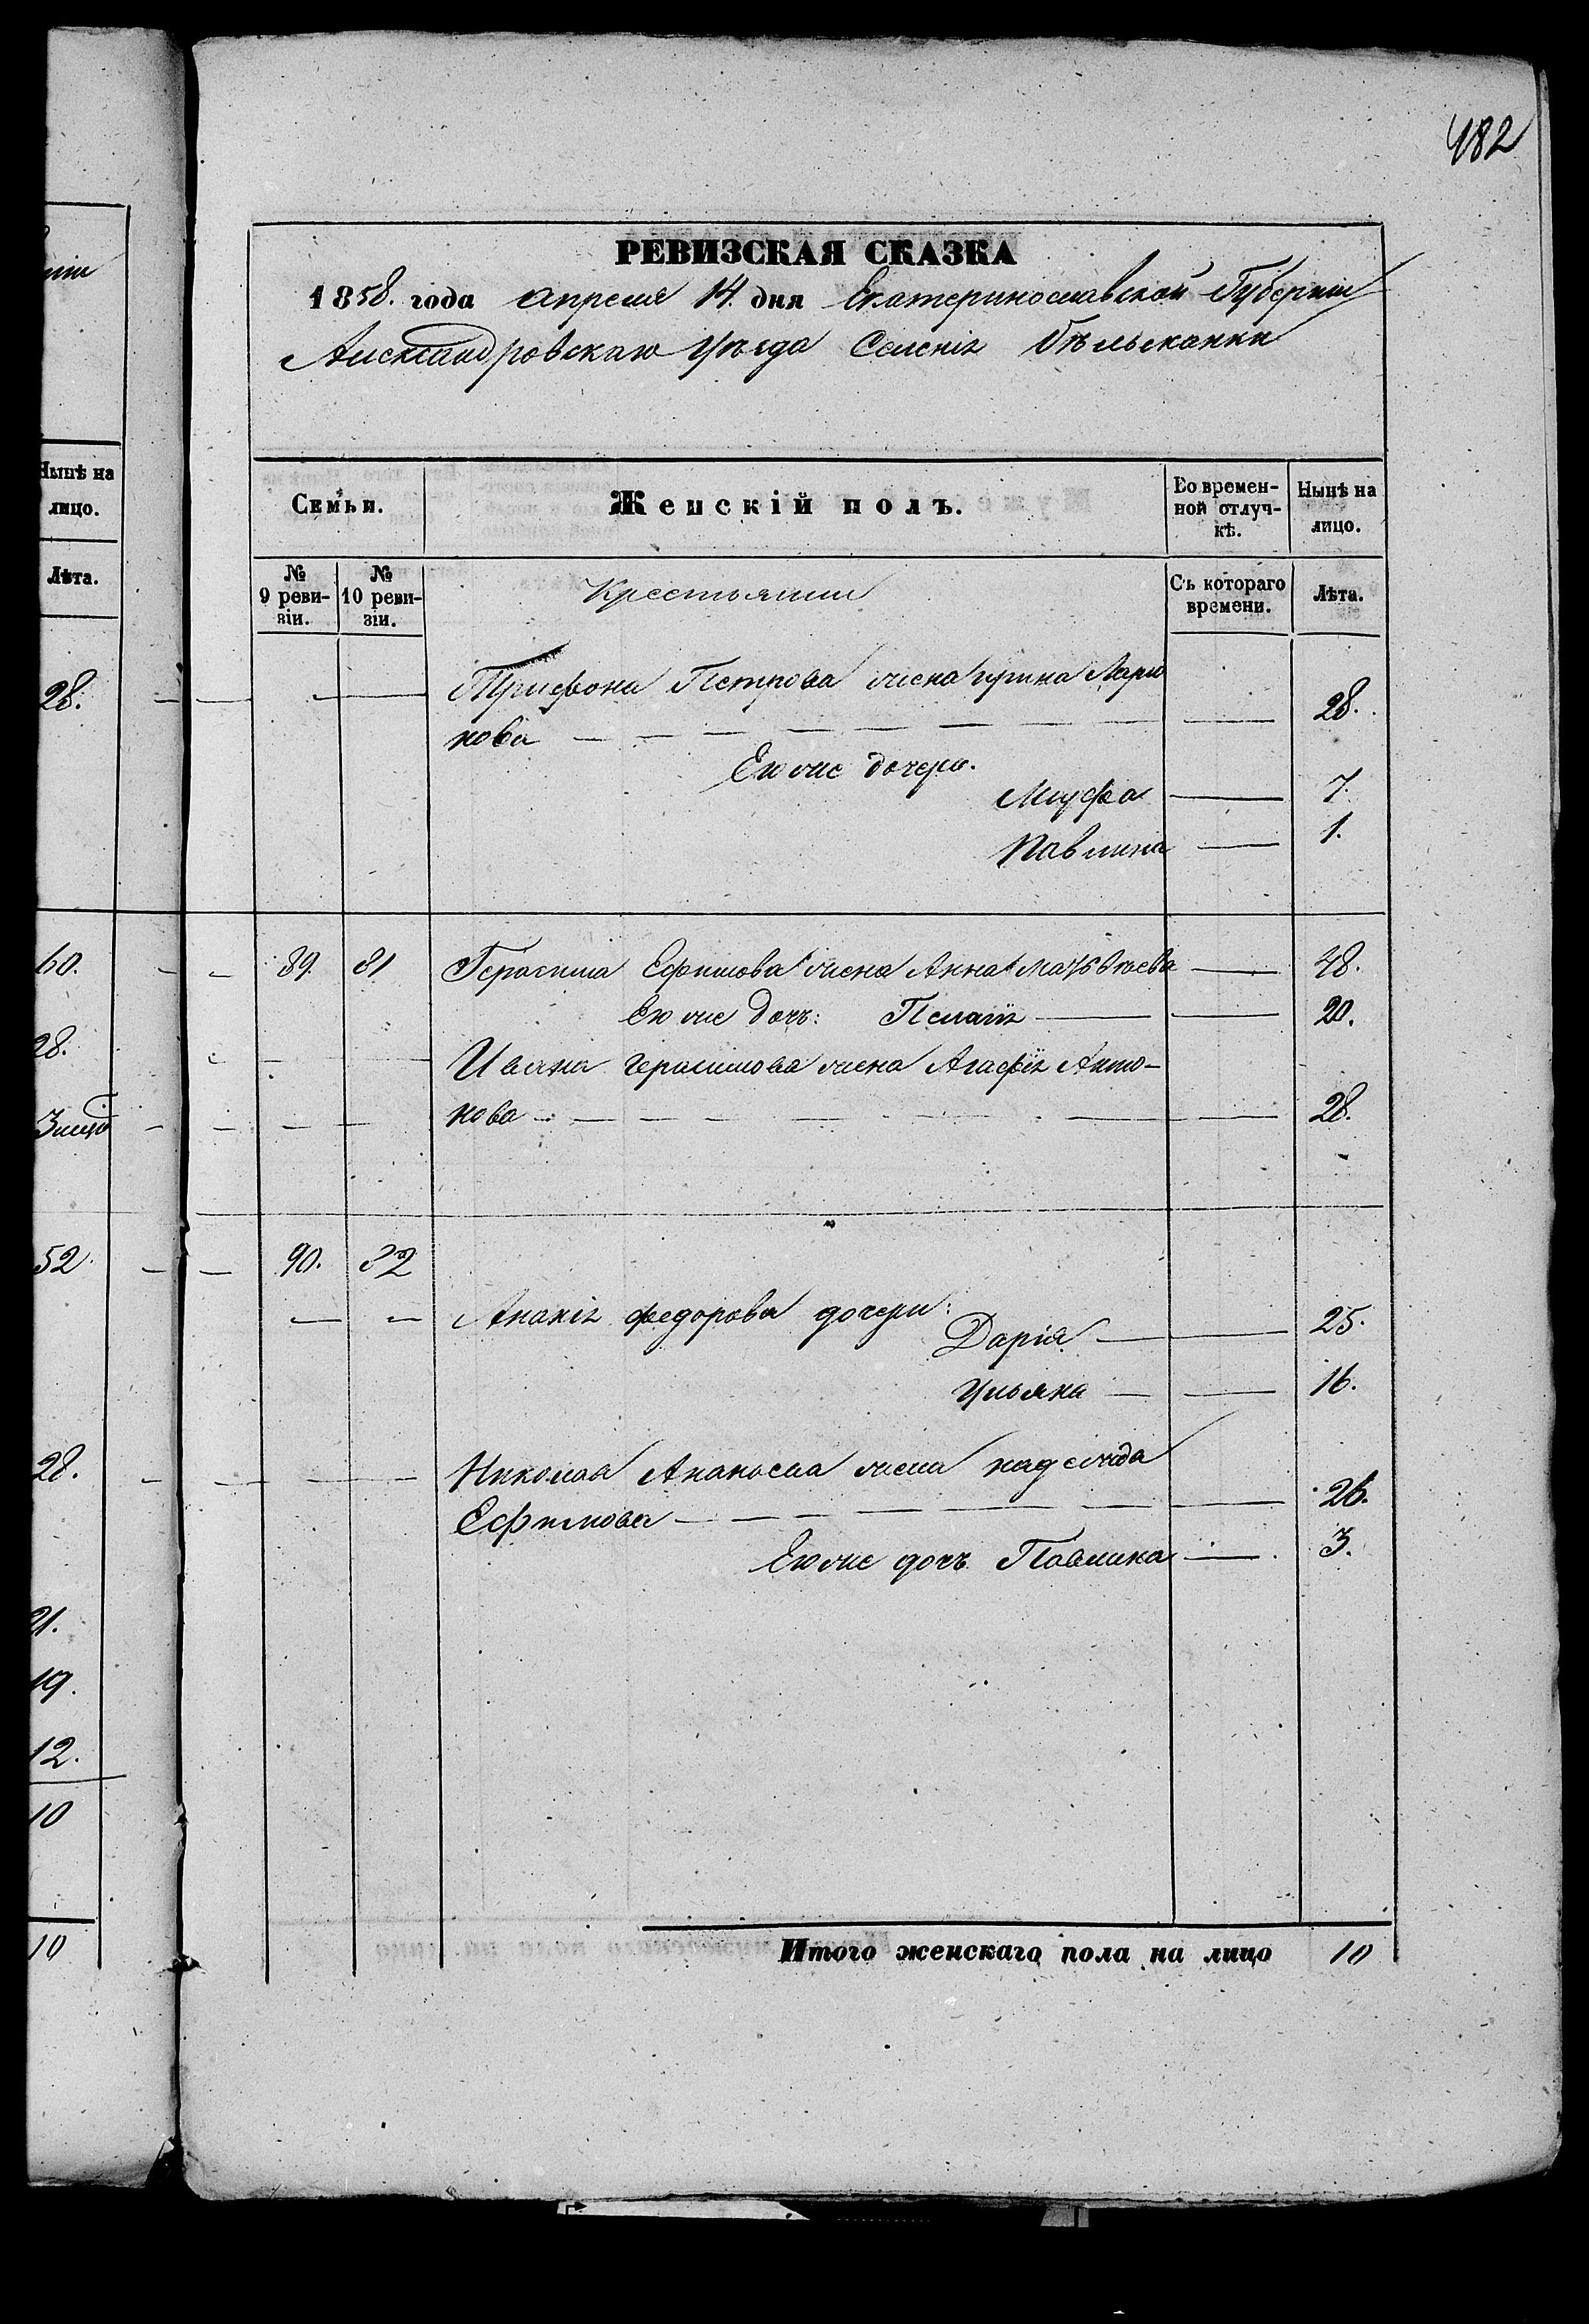 482
РЕВИЗСКАЯ СКАЗКА
1858. года Апреля 14. дня Екатеринославской Губерніи
Александровскаго уѣзда Селенія Бѣльманки
Семьи.
Женскій полъ.
Во времен-
ной отлуч-
кѣ.
Нынѣ на
лицо.
№
9 реви-
зіи.
№
10 реви-
зіи.
Крестьяния
Съ котораго
времени.
Лѣта.
Трифона Петрова жена Ирина Ларио
нова 28.
Его же дочери.
Марфа 7.
Павлина 1.
89. 81 Герасима Ефимова жена Анна Матвѣева 48.
Его же дочь: Пелагія 20.
Ивана Герасимова жена Агафія Анто-
нова 28.
90. 82
Ананія Федорова дочери:
Дарія 25.
Ульяна 16.
Николая Ананьева жена Надежда
Ефимова 26.
Его же дочь Павлина 3.
Итого женскаго пола на лицо 10
Нынѣ на
лицо.
Лѣта.
28.
60.
28.
52
28.
21.
19.
12.
10
10